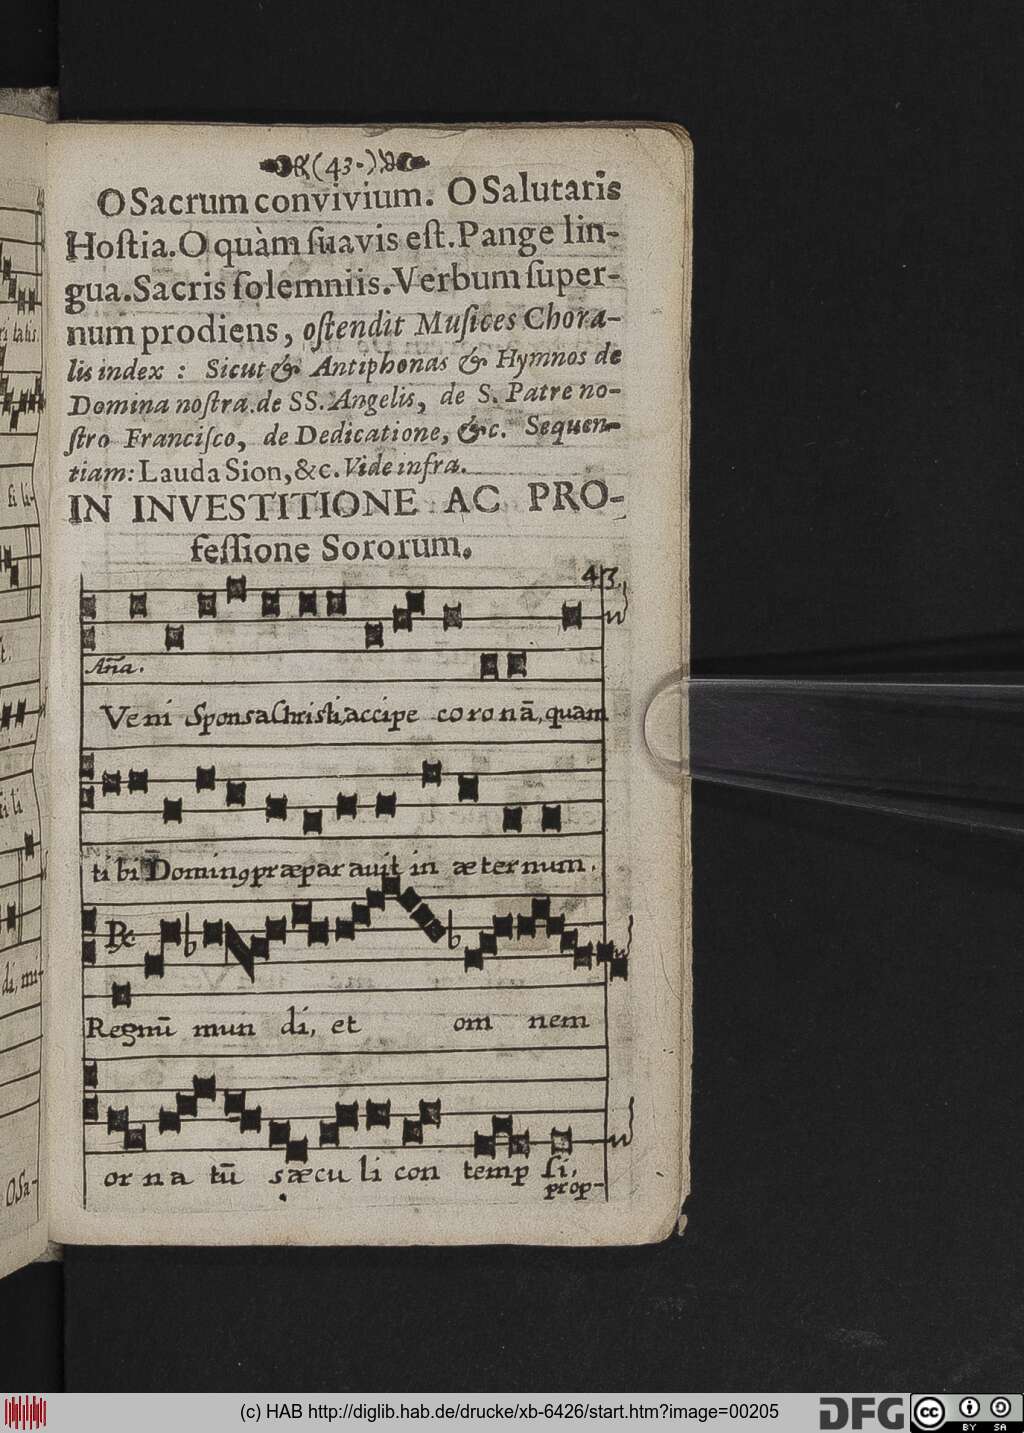 (43.)
O Sacrum convivium. O Salutaris
Hoſtia. O quàm ſuavis eſt. Pange lin-
gua. Sacris ſolemniis. Verbum ſuper-
num prodiens, oſtendit Muſices Chora-
lis index : Sicut & Antiphonas & Hymnos de
Domina noſtra. de SS. Angelis, de S. Patre no-
ſtro Franciſco, de Dedicatione, &c. Sequen-
tiam: Lauda Sion, &c. Vide infra.
IN INVESTITIONE AC PRO-
feſſione Sororum.
43.
Aña.
Ve ni Sponsa Christi, accipe co ro nā, quam
ti bi Dominꝯ præpar avit in æ ter num.
℟
Regnū mun di, et om nem
or na tū sæcu li con temp ſi,
prop-
ri tatis.
ſi li-
t.
di, mi-
OSa-
(c) HAB http://diglib.hab.de/drucke/xb-6426/start.htm?image=00205
DFG
cc
BY SA